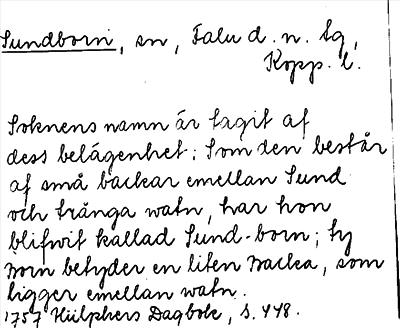 Sundborn, sn, Falu d. n. tg,
Kopp. l.
Soknens namn är tagit af
dess belägenhet; Som den består
af små backar emellan Sund
och trånga watn, har hon
blifwit kallad Sund-born; ty
Born betyder en liten Backa, som
ligger emellan watn.
1757 Hülphers Dagbok, S. 448.